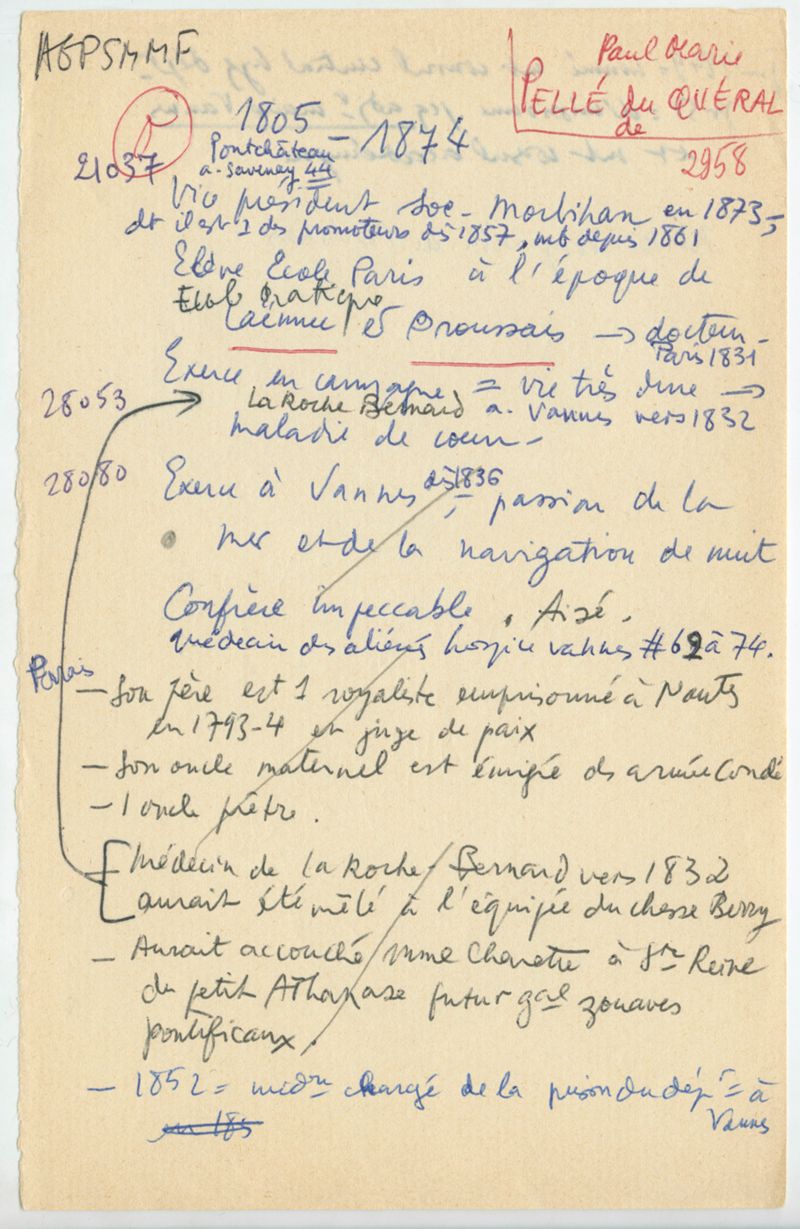 AGPSMMF
Paul Marie
PELLÉ du QUÉRAL
de
2958
1805 - 1874
21037
Pontchâteau
a. Savenay 44
Vice président Soc. Morbihan en 1873,
dt il est 1 des promoteurs dès 1857, mb depuis 1861
Elève Ecole Paris à l'époque de
Ecole Pratique
Laënnec et Broussais → docteur
Paris 1831
Exerce en campagne = vie très dure →
28053
La Roche Bernard a. Vannes vers 1832
maladie de coeur -
28080
Exerce à Vannes dès 1836, passion de la
mer et de la navigation de nuit
Confrère impeccable. Aisé.
Médecin des aliénés hospice Vannes # 62 à 74.
- Son père est 1 royaliste emprisonné à Nantes
en 1793-4 et juge de paix
- Son oncle maternel est émigré ds armée Condé
- 1 oncle prêtre.
Médecin de La Roche-Bernard vers 1832
aurait été mêlé à l'équipée duchesse Berry
- Aurait accouché Mme Charette à Ste Reine
du petit Athanase futur gal zouaves
pontificaux.
- 1852 = médn chargé de la prison du dépt = à
Vannes
en 185